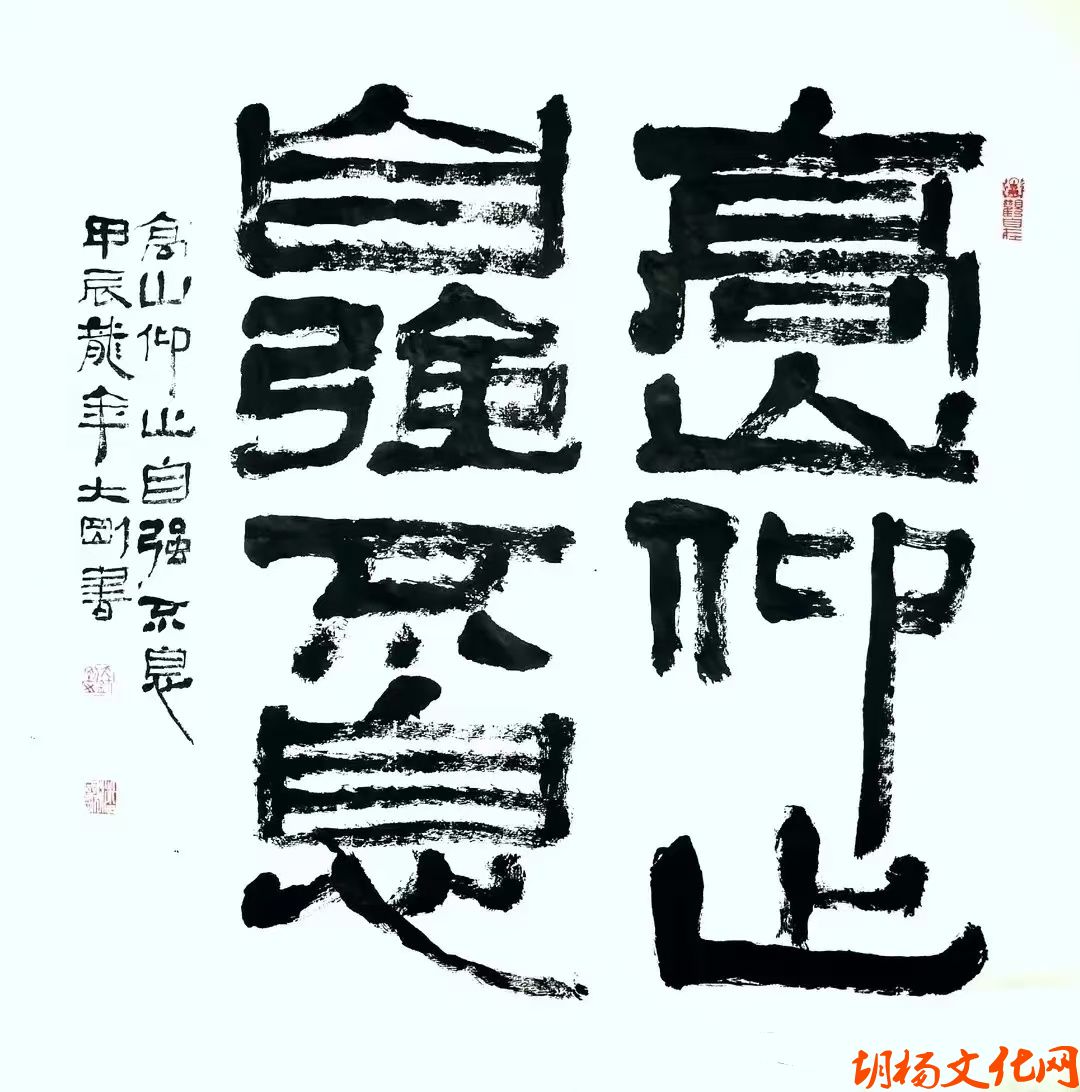 高山仰止
自强不息
高山仰止自强不息
甲辰龍年大剛書
胡杨文化网